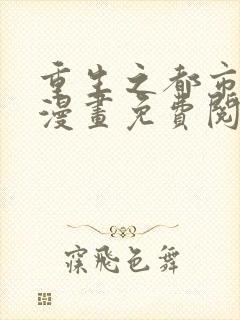 重生之都市
漫畫免費閱
寐飛色舞